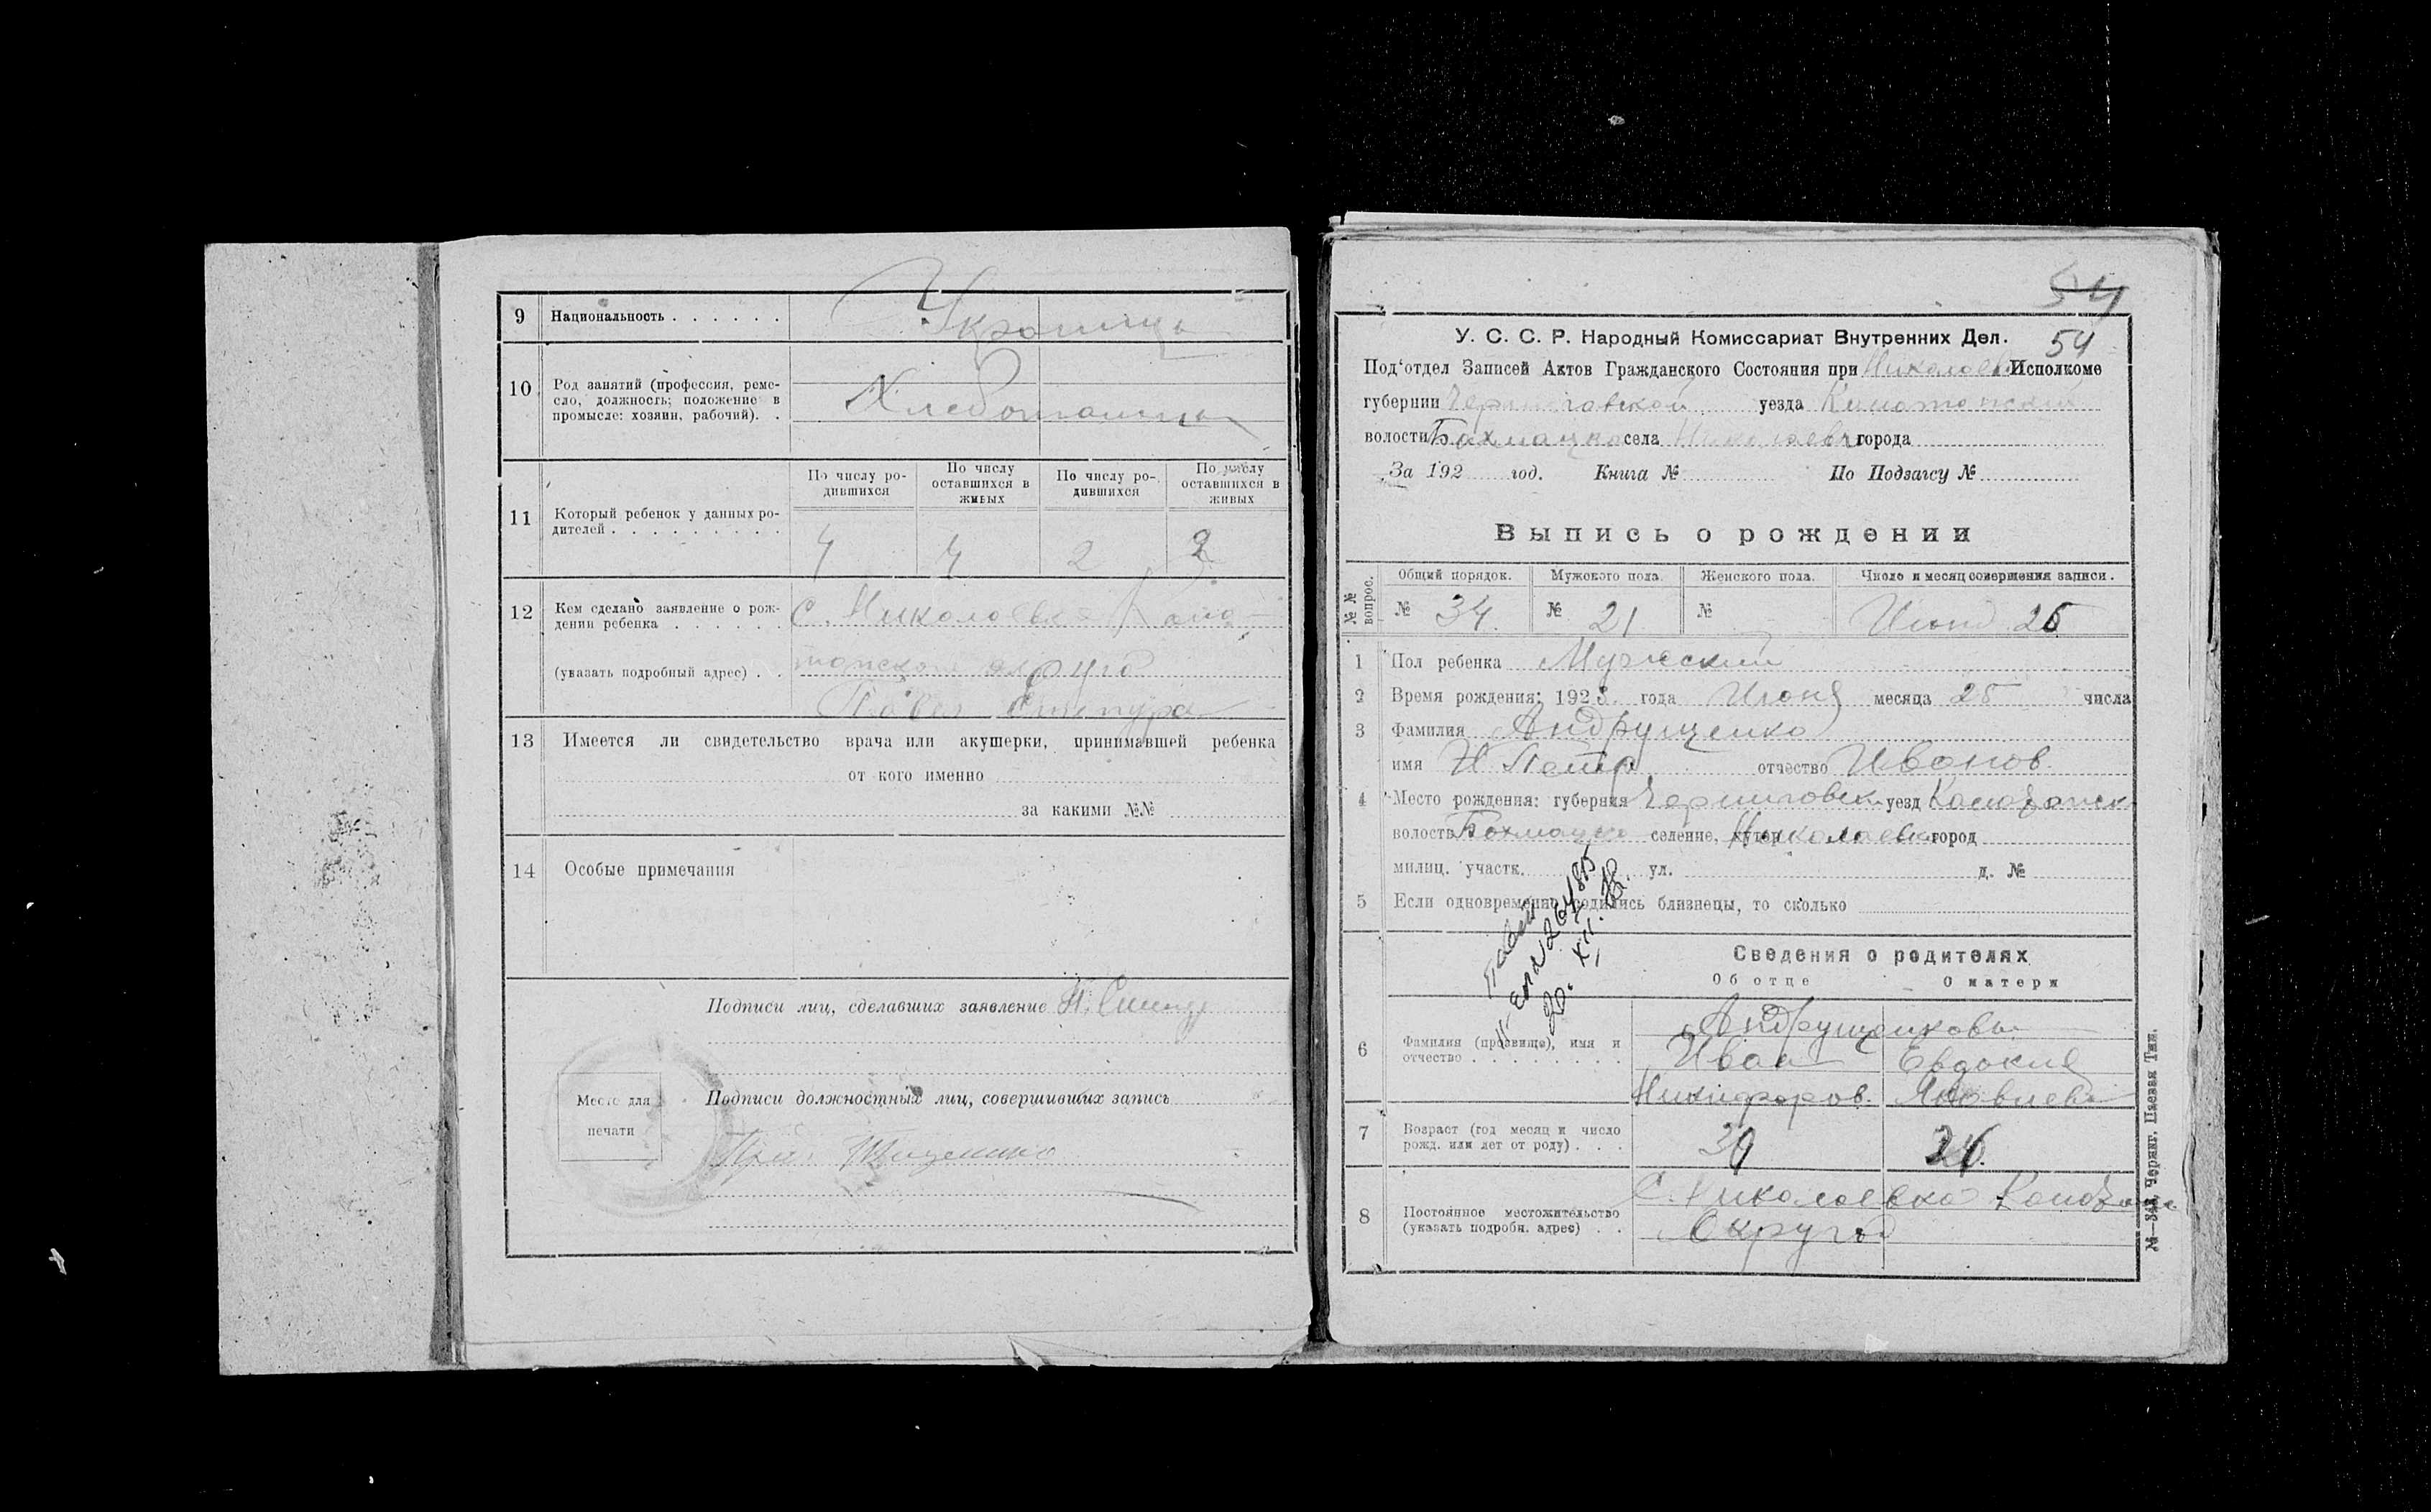 9 Национальность . . . . . .
Украинцы
10 Род занятий (профессия, реме-
сло, должность; положение в
промысле: хозяин, рабочий). .
Хлебопашцы
По числу ро-
дившихся
По числу
оставшихся в
живых
По числу ро-
дившихся
По числу
оставшихся в
живых
11 Который ребенок у данных ро-
дителей . . . . . . . . .
4 4 2 2
12 Кем сделано заявление о рож-
дении ребенка . . . . . .
С. Николаевка Коно-
(указать подробный адрес) . .
топской округа
Павел
13 Имеется ли свидетельство врача или акушерки, принимавшей ребенка
от кого именно
за какими №№
14 Особые примечания
Подписи лиц, сделавших заявление П.
Место для
печати
Подписи должностных лиц, совершивших запись
Тищенко
54
54
У. С. С. Р. Народный Комиссариат Внутренних Дел.
Под'отдел Записей Актов Гражданского Состояния при Николаев Исполкоме
губернии Черниговской уезда Конотопский
волости Бахмацко села Николаевк города
За 192 год. Книга № По Подзагсу №
Выпись о рождении
№ № вопрос.
Общий порядок. Мужского пола. Женского пола. Число и месяц совершения записи.
№ 34. № 21 № Июня 26
1 Пол ребенка Мужский
2 Время рождения: 1923 года Июня месяца 25 числа
3 Фамилия Андрущенко
имя Петр отчество Иванов
4 Место рождения: губерния Черниговск уезд Конотопск
волость Бахмацко селение, хутор Николаевка город
милиц. участк. ул. д. №
5 Если одновременно родились близнецы, то сколько
Сведения о родителях
Об отце О матери
6 Фамилия (прозвище), имя и
отчество . . . . . . . .
Андрущенковы
Иван Евдокия
Никифоров. Яковлева
7 Возраст (год месяц и число
рожд. или лет от роду) . . .
8 Постоянное местожительство
(указать подробн. адрес) . .
С. Николаевка Конотопск
Округа